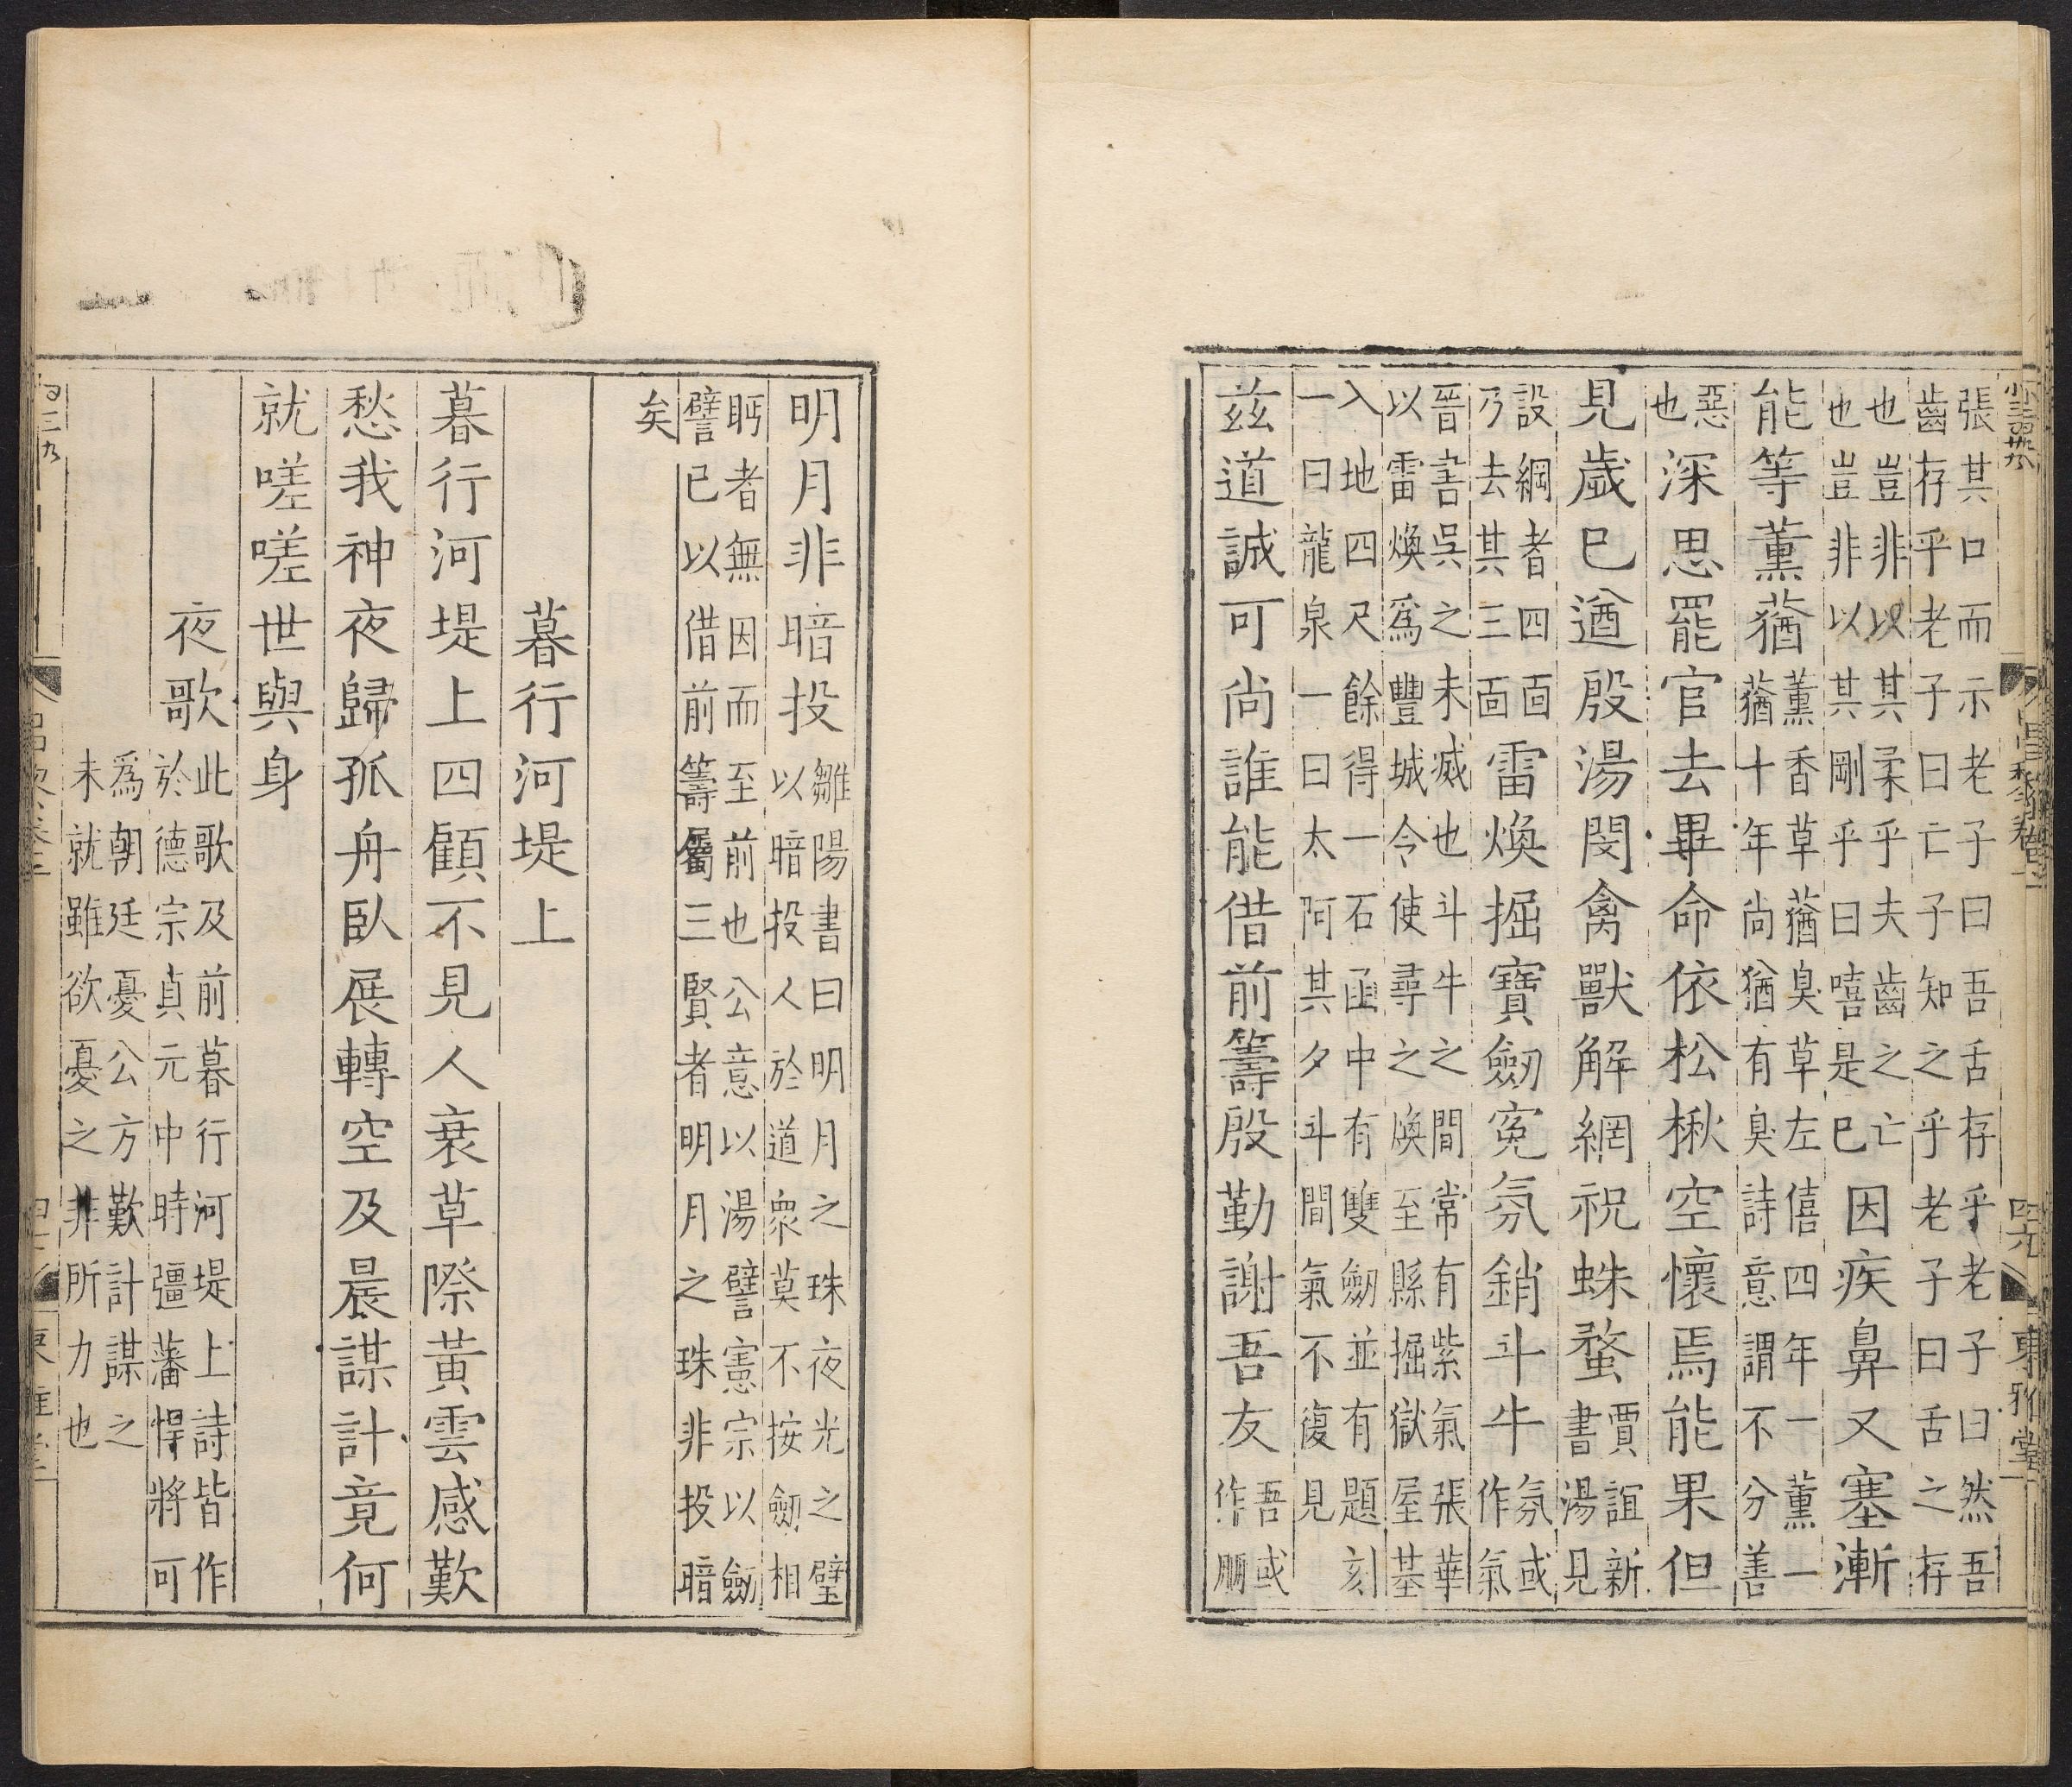 張其口而示老子曰吾舌存乎老子曰然吾
齒存乎老子曰亡子知之乎老子曰舌之存
也豈非以其柔乎夫齒之亡
也豈非以其剛乎曰嘻是已
因疾鼻又塞漸
能等薰蕕
薰香草蕕臭草左僖四年一薰一
蕕十年尚猶有臭詩意謂不分善
惡
也
深思罷官去畢命依松楸空懷焉能果但
見歲巳遒殷湯閔禽獸解網祝蛛蝥
賈誼新
書湯見
設網者四面
乃去其三面
雷煥掘寶劒冤氛銷斗牛
氛或
作氣
晉書吳之未滅也斗牛之間常有紫氣張華
以雷煥爲豐城令使尋之煥至縣掘獄屋基
入地四尺餘得一石函中有雙劒並有題刻
一曰龍泉一曰太阿其夕斗間氣不復見
茲道誠可尚誰能借前籌殷勤謝吾友
吾或
作朋
明月非暗投
雛陽書曰明月之珠夜光之璧
以暗投人於道衆莫不按劒相
眄者無因而至前也公意以湯譬憲宗以劒
譬已以借前籌屬三賢者明月之珠非投暗
矣
暮行河堤上
暮行河堤上四顧不見人衰草際黃雲感歎
愁我神夜歸孤舟臥展轉空及晨謀計竟何
就嗟嗟世與身
夜歌
此歌及前暮行河堤上詩皆作
於德宗貞元中時彊藩悍將可
爲朝廷憂公方歎計謀之
未就雖欲憂之非所力也
東雅堂